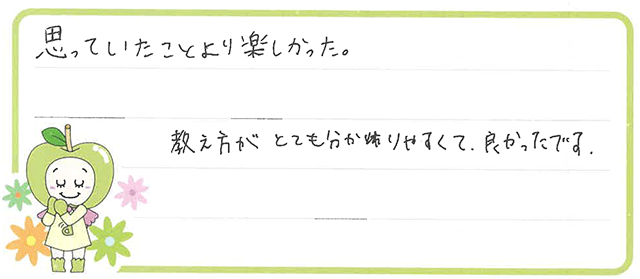 思っていたことより楽しかった。
教え方がとても分かりやすくて、良かったです.